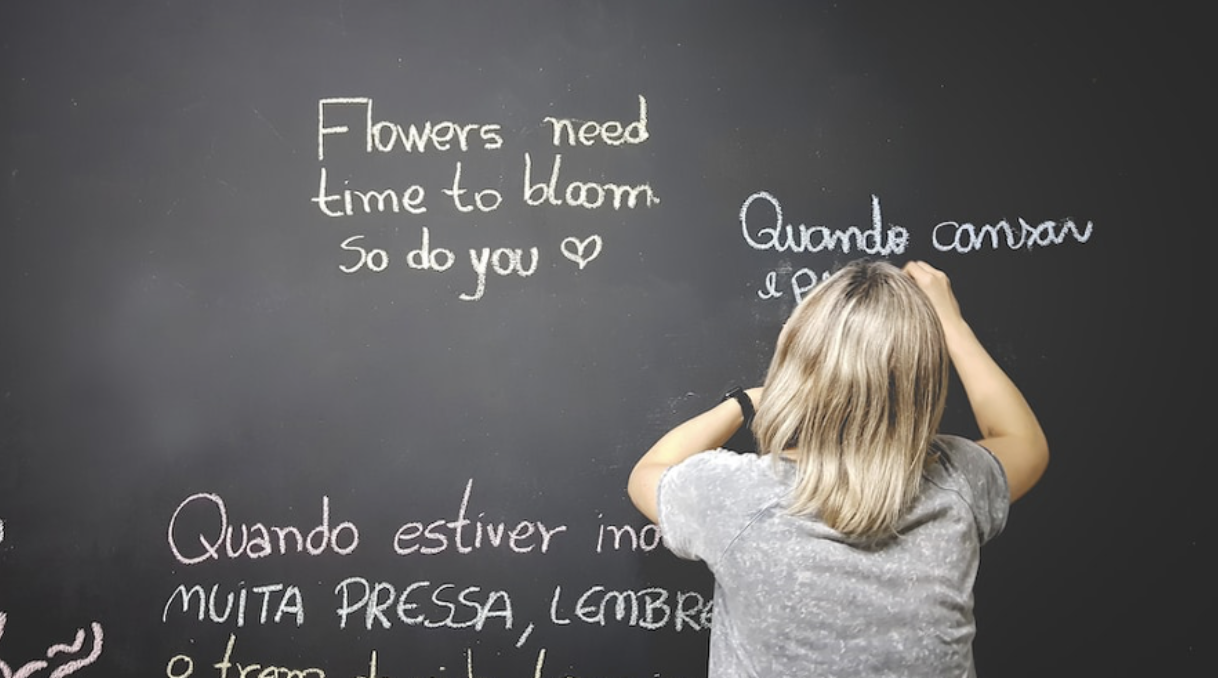 Flowers need
time to bloom.
So do you ♡
Quando cansar
e
Quando estiver
MUITA PRESSA, LEMBRE
o trem